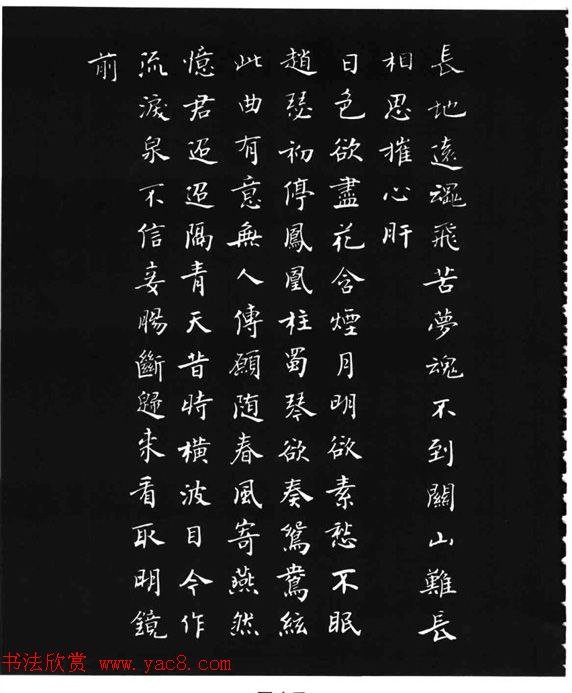 長地遠魂飛苦夢魂不到關山難長
相思摧心肝
日色欲盡花含煙月明欲素愁不眠
趙瑟初停鳳凰柱蜀琴欲奏鴛鴦絃
此曲有意無人傳願随春風寄燕然
憶君迢迢隔青天昔時橫波目今作
流淚泉不信妾腸斷歸來看取明鏡
前
书法欣赏 www.yac8.com